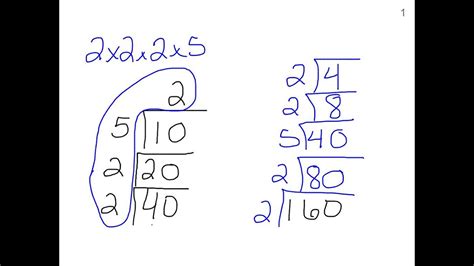 1
2x2x2x5
2
5 10
2 20
2 40
2 4
2 8
5 40
2 80
2 160